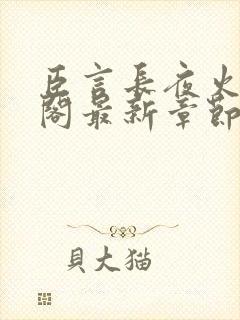 臣言長夜火
閣最新章節
貝大猫